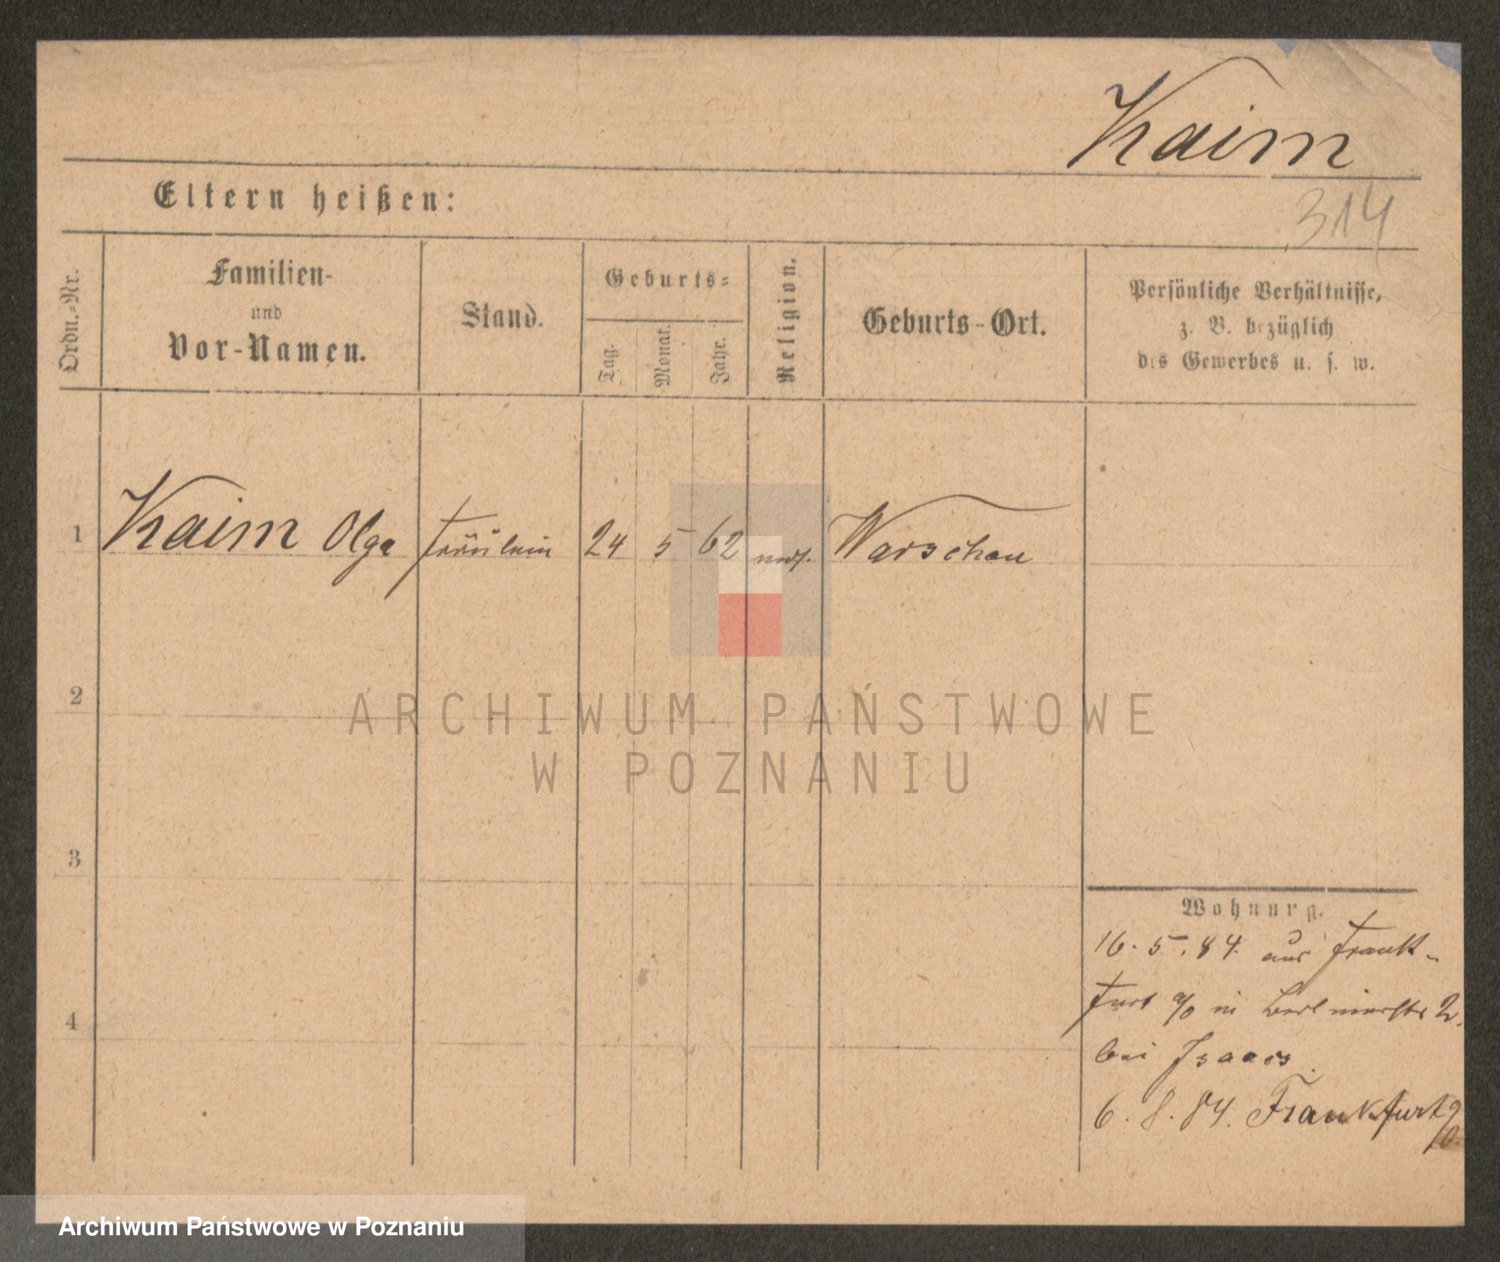 Kaim
314
Eltern heißen:
Ordn.-Nr.
Familien-
und
Vor-Namen.
Stand.
Geburts-
Tag.
Monat.
Jahr.
Religion.
Geburts-Ort.
Persönliche Verhältnisse,
z. B. bezüglich
des Gewerbes u. s. w.
1 Kaim Olga Fräulein 24 5 62 Warschau
2
ARCHIWUM PAŃSTWOWE
W POZNANIU
3
Wohnung.
16. 5. 84. aus Frank-
furt a/O in Berlinerstr 2.
bei Isaacs.
4
6. 8. 84. Frankfurt a/O
Archiwum Państwowe w Poznaniu